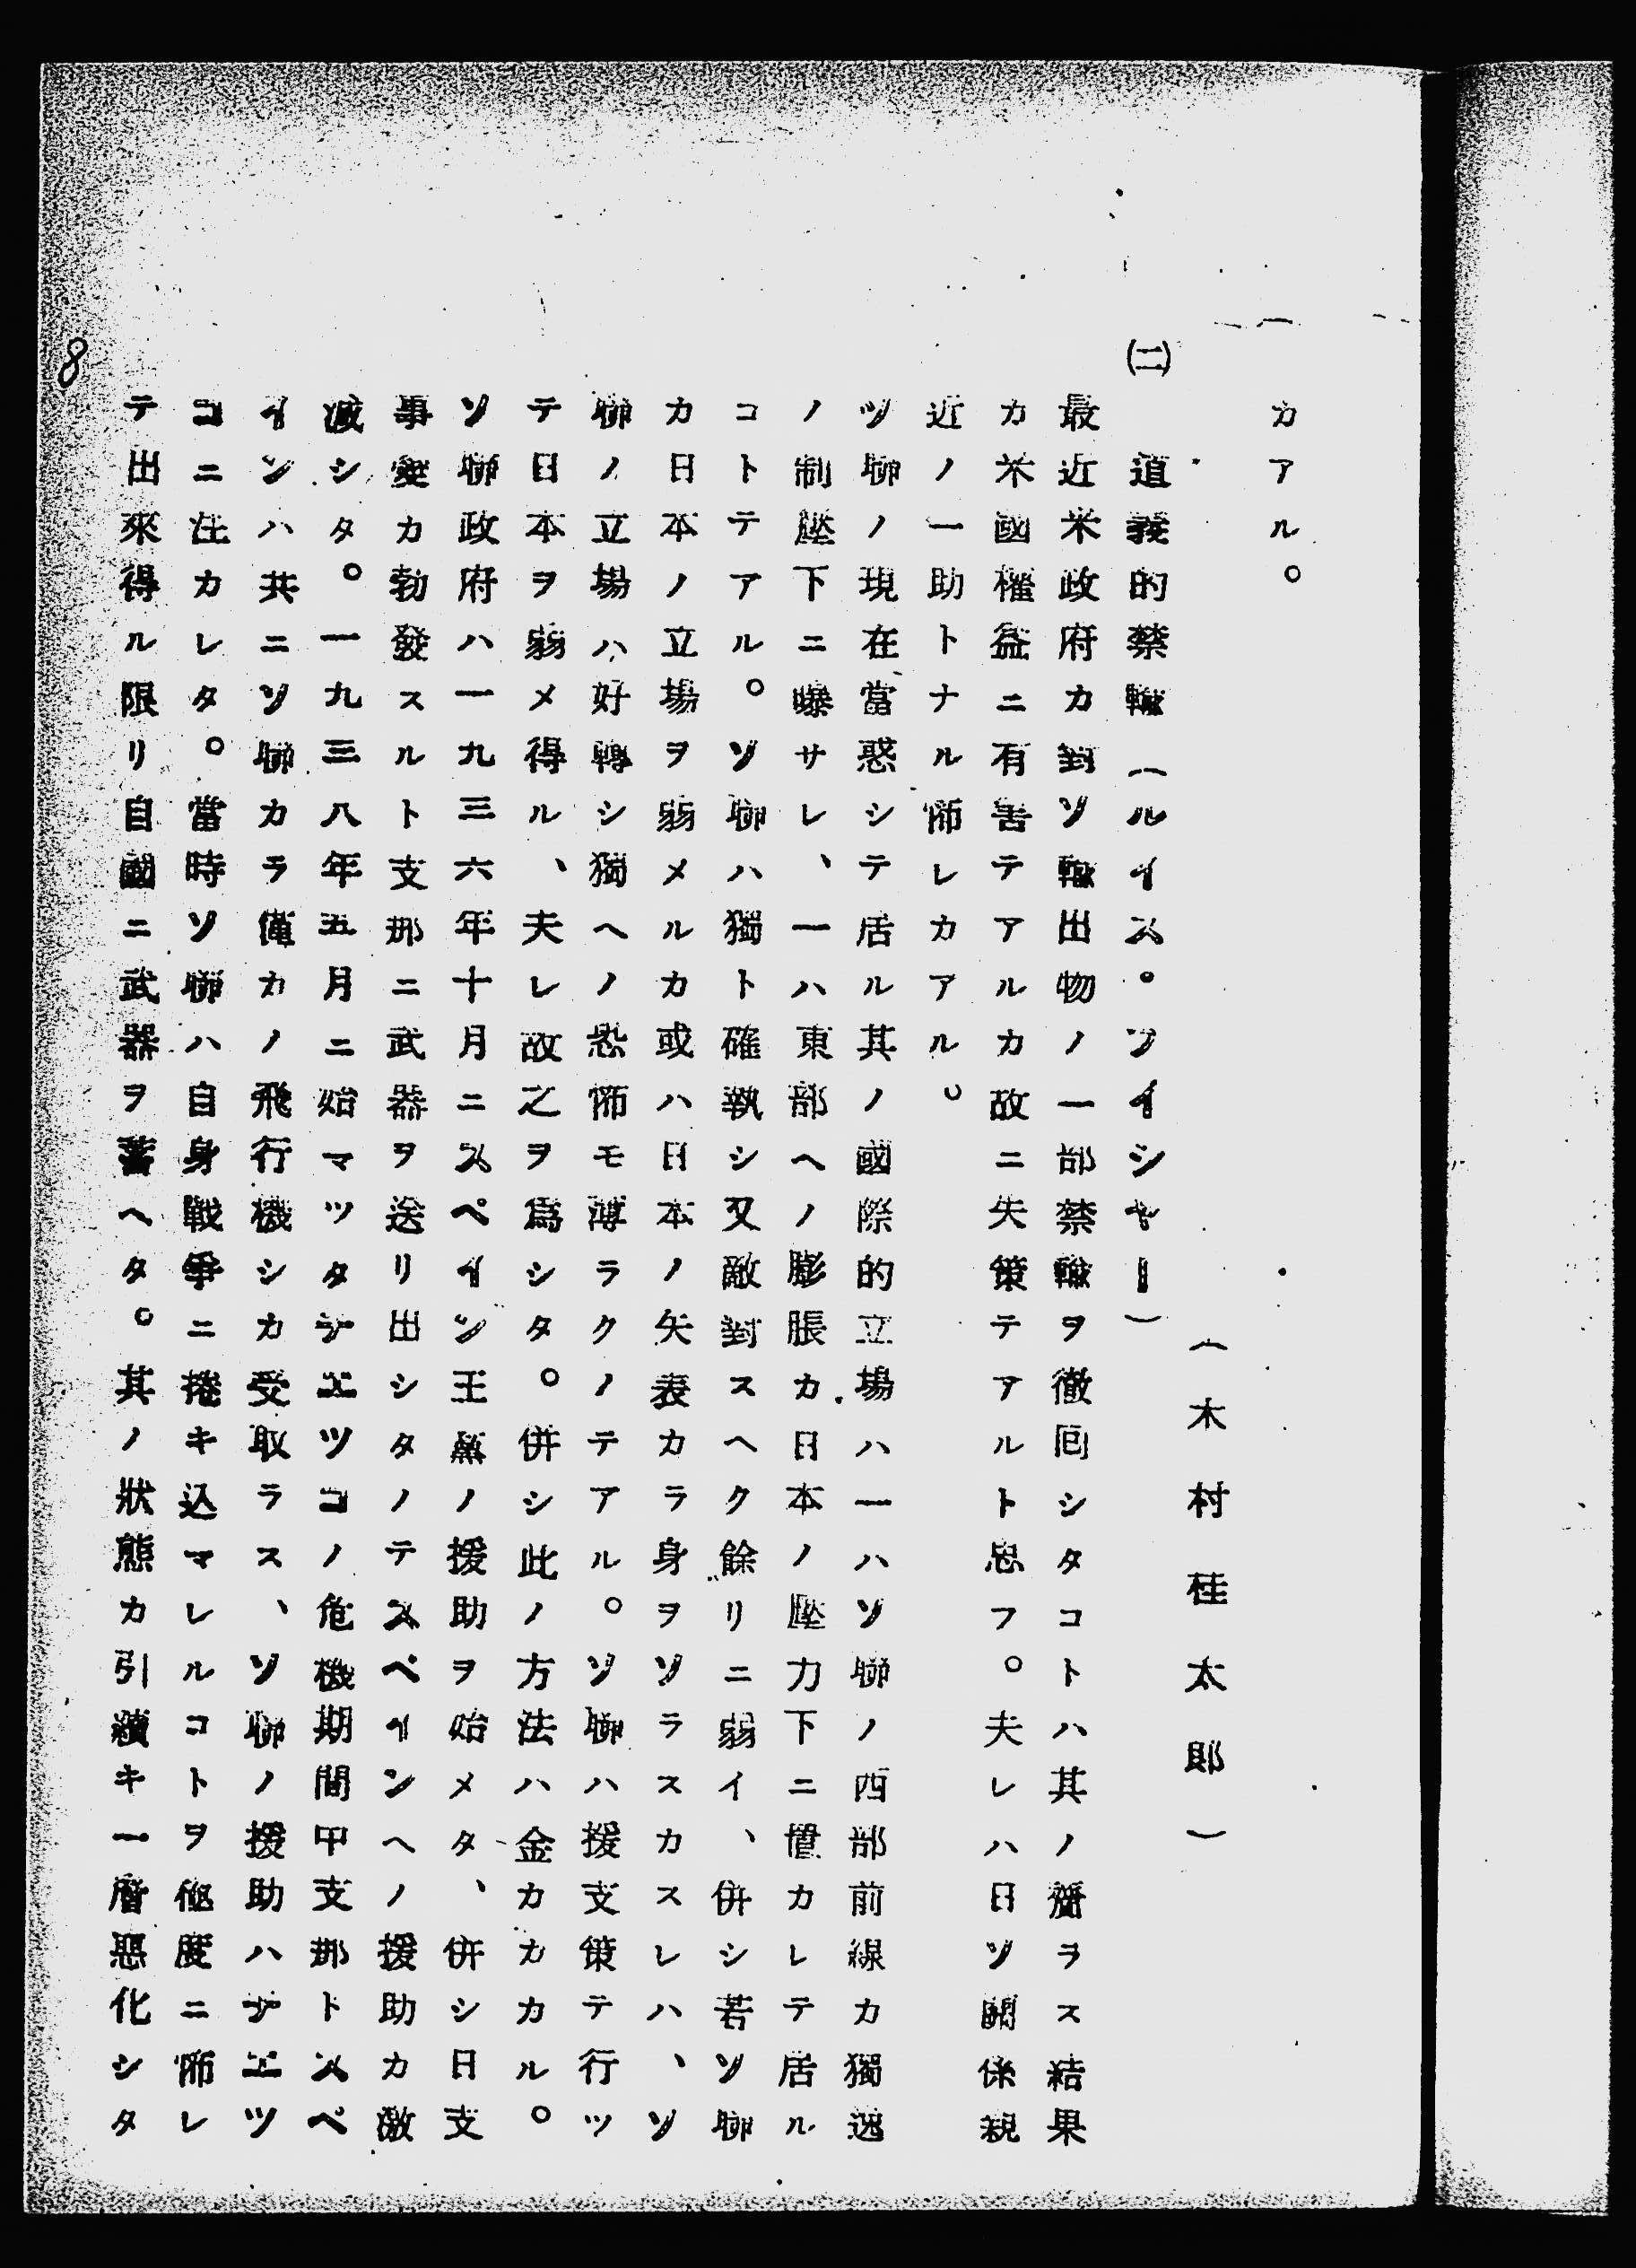 カアル。
（木村桂太郎）
(二)
道義的禁輸（ルイス。フイシヤー）
最近米政府カ對ソ輸出物ノ一部禁輸ヲ徹回シタコトハ其ノ齎ラス結果
カ米國權益ニ有害テアルカ故ニ失策テアルト思フ。夫レハ日ソ關係親
近ノ一助トナル怖レカアル。
ソ聯ノ現在當惑シテ居ル其ノ國際的立場ハ一ハソ聯ノ西部前線カ獨逸
ノ制壓下ニ曝サレ、一ハ東部ヘノ膨脹カ日本ノ壓力下ニ置カレテ居ル
コトテアル。ソ聯ハ獨ト確執シ又敵對スヘク餘リニ弱イ、併シ若ソ聯
カ日本ノ立場ヲ弱メルカ或ハ日本ノ矢表カラ身ヲソラスカスレハ、ソ
聯ノ立場ハ好轉シ獨ヘノ恐怖モ薄ラクノテアル。ソ聯ハ援支策テ行ツ
テ日本ヲ弱メ得ル、夫レ故之ヲ爲シタ。併シ此ノ方法ハ金カカカル。
ソ聯政府ハ一九三六年十月ニスペイン王黨ノ援助ヲ始メタ、併シ日支
事變カ勃發スルト支那ニ武器ヲ送リ出シタノテスペインヘノ援助カ激
減シタ。一九三八年五月ニ始マツタチエツコノ危機期間中支那トスペ
インハ共ニソ聯カラ僅カノ飛行機シカ受取ラス、ソ聯ノ援助ハチエツ
コニ注カレタ。當時ソ聯ハ自身戰爭ニ捲キ込マレルコトヲ極度ニ怖レ
テ出來得ル限リ自國ニ武器ヲ蓄ヘタ。其ノ狀態カ引續キ一層惡化シタ
8